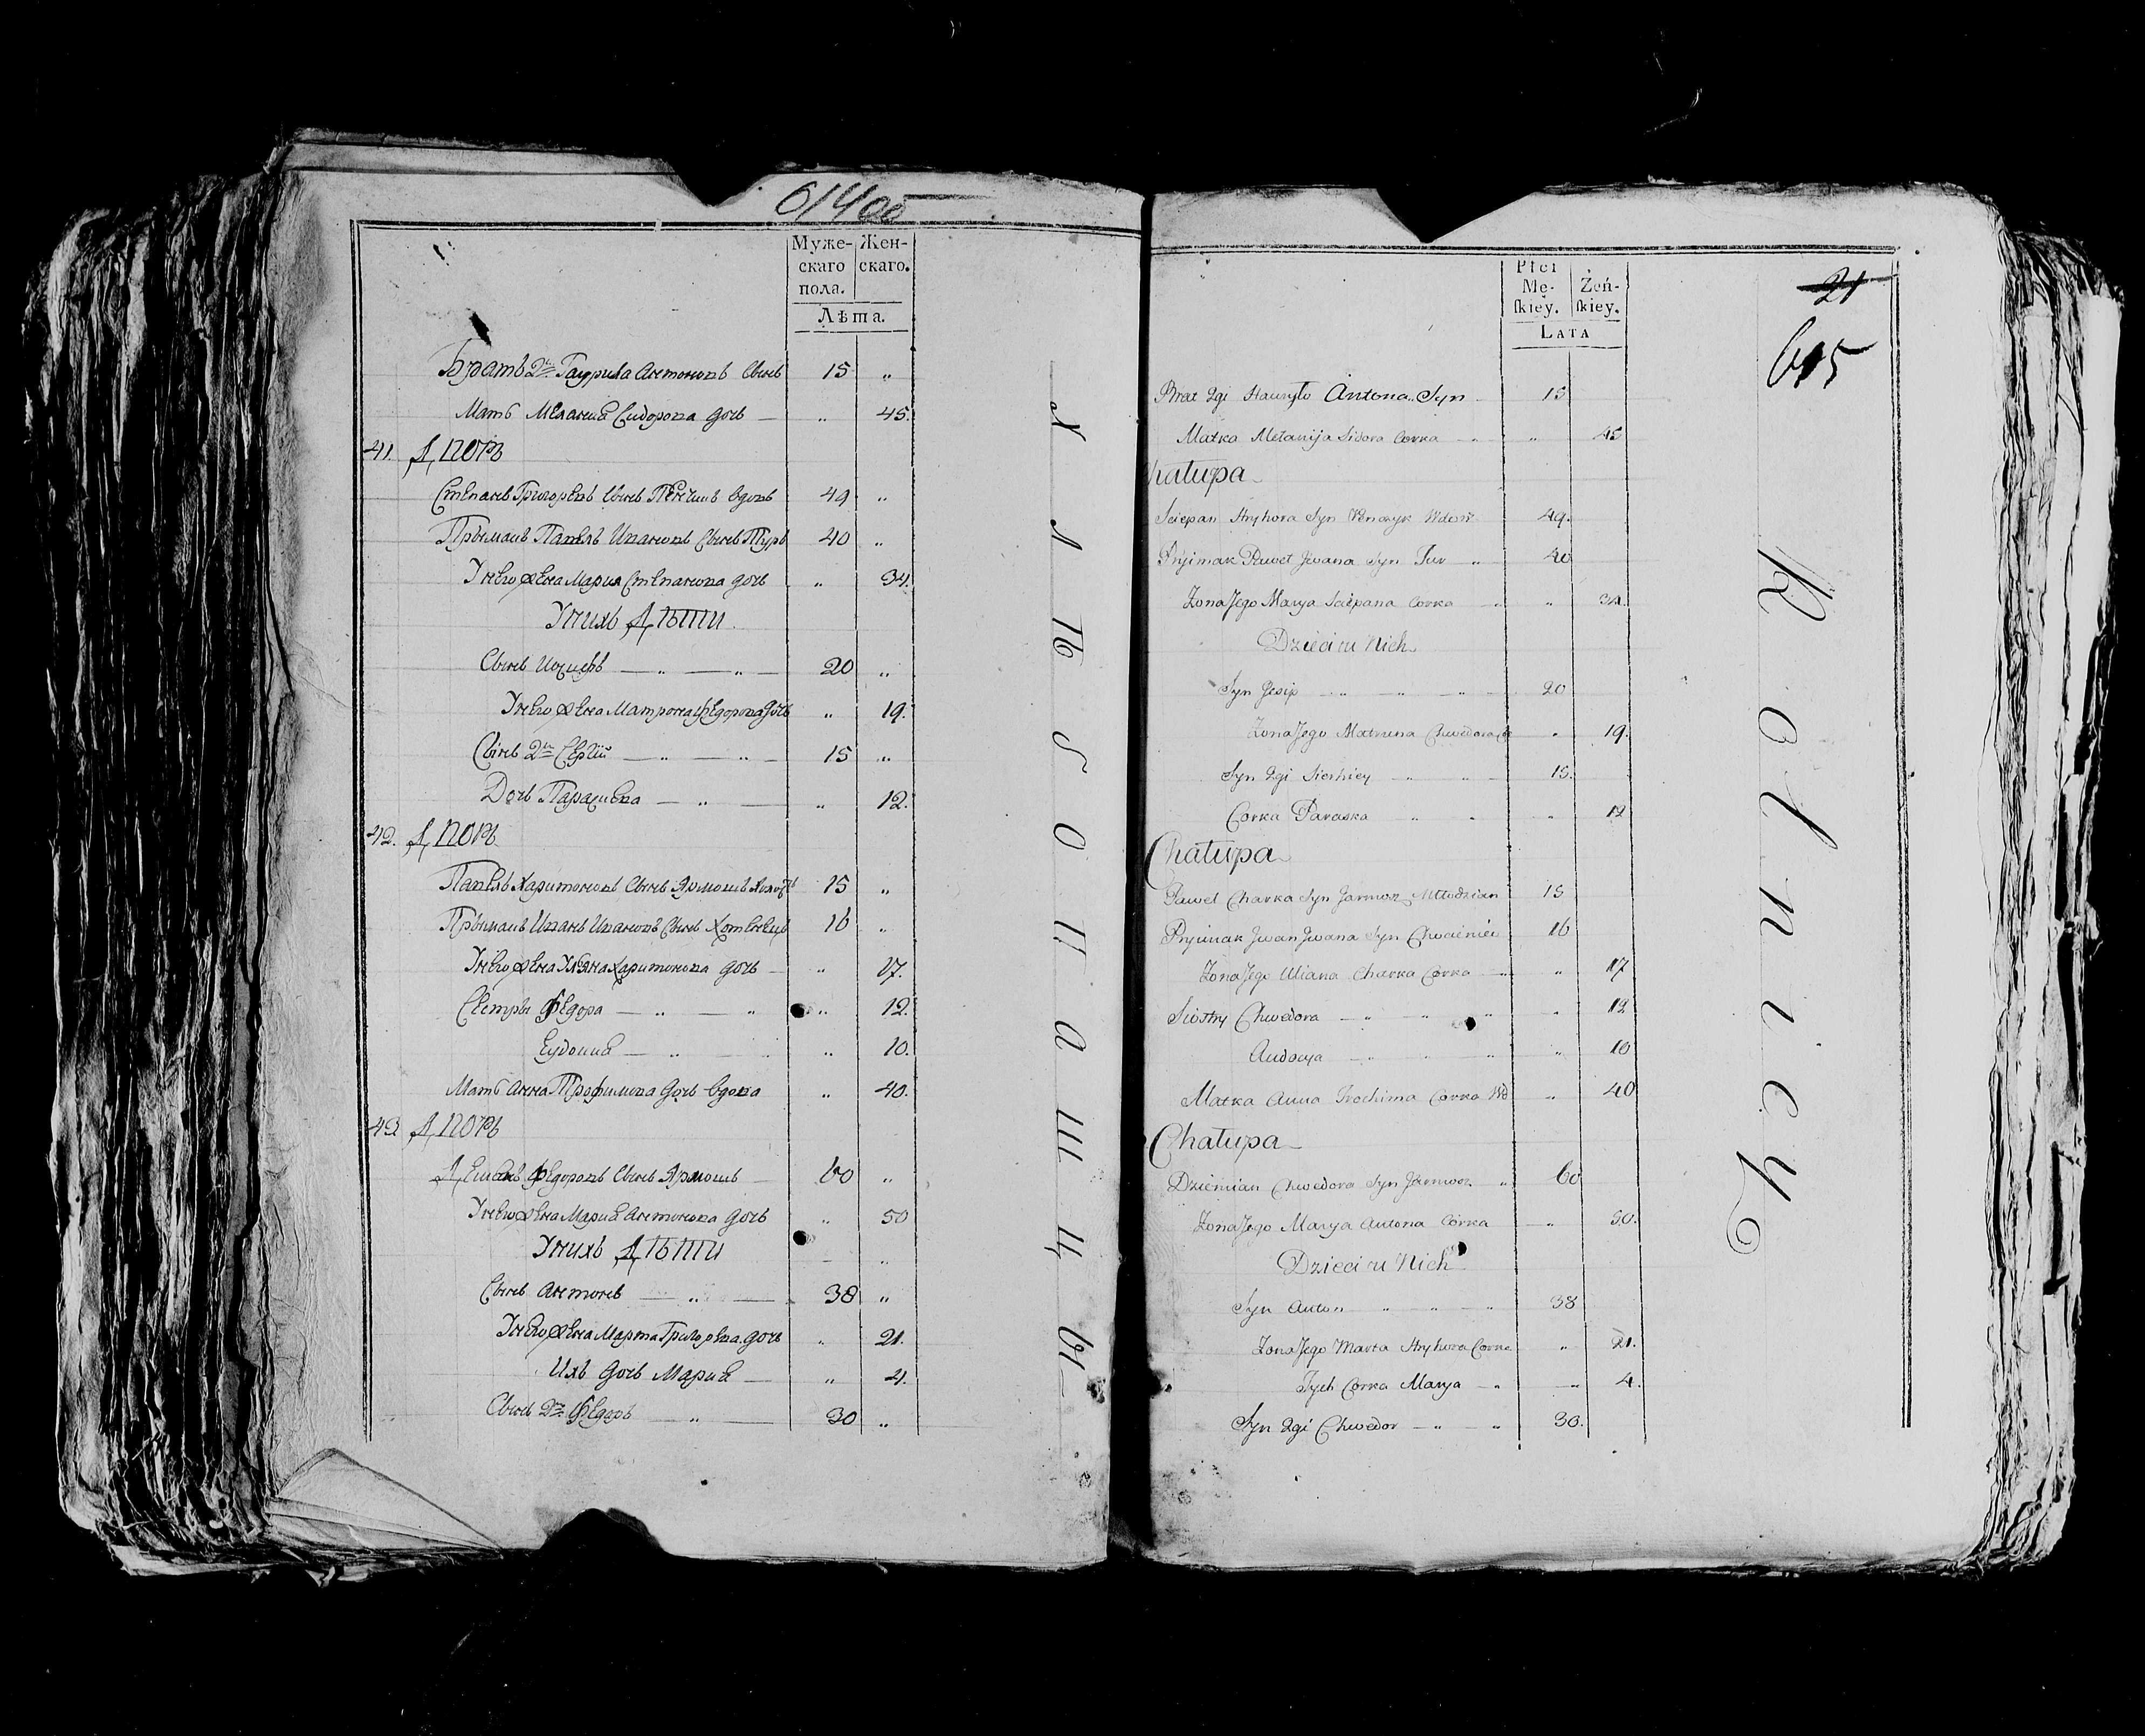 614 об
Муже- Жен-
скаго скаго.
пола.
Лѣта.
Братъ 2й Гаурила Антоновъ Сынъ 15 „
Мать Мелания Сидорова дочь — „ 45.
41. Дворъ
Степанъ Григорьевъ Сынъ вдовъ 49 „
Прымакъ Павелъ Ивановъ Сынъ Туръ 40 „
У него жена Мария Степанова дочь „ 34.
У них Дѣти
Сынъ — „ — „ — 20 „
У него жена Матрона Федорова дочь „ 19.
Сынъ 2й Сергій — „ — „ — 15 „
Дочь Парасцева — „ — „ 12.
42. Дворъ
Павелъ Харитоновъ Сынъ 15 „
Прымакъ Иванъ Ивановъ Сынъ 16 „
У него жена Уляна Харитонова дочь — „ 17.
Сестры Федора — „ — „ „ 12.
Еудокия — „ „ 10.
Мать Анна Трофимова дочь вдова „ 40.
43. Дворъ
Демянъ Федоровъ Сынъ — 60 „
У него жена Мария Антонова дочь „ 50
У них Дѣти „
Сынъ Антонъ — „ — 38 „
У него жена Марта Григорьева дочь „ 21.
Их дочь Мария — „ 4.
Сынъ 2й Федоръ — „ — 30 „
Płci
Mę- Żeń-
skiey. skiey.
Lata
21
615
Brat 2gi Hauryło Antona Syn 15
Matka Mełanija Sidora Corka — „ „ 45
Chałupa
Sciepan Hryhora Syn Wdow 49.
Pryimak Paweł Jwana Syn Tur „ 40
Zona Jego Marya Sciepana Corka „ „ 34.
Dzieci u Nich
Syn Josip „ „ „ 20
Zona Jego Matruna Chwedora „ 19.
Syn 2gi Sierhiey „ „ 15.
Corka Paraska „ „ „ 12
Chałupa
Paweł Charka Syn 15
Pryimak Jwan Jwana Syn 16
Zona Jego Uliana Charka Corka — „ „ 17
Siostry Chwedora — „ „ „ „ 12
Audocya — „ „ „ 10
Matka Anna Trochima Corka Wd „ 40
Chałupa
Dziemian Chwedora Syn „ 60
Zona Jego Marya Antona Corka — „ 50.
Dzieci u Nich
Syn Anton „ „ — „ 38
Zona Jego Marta Hryhora Corka „ 21.
Jych Corka Marya — „ — „ 4.
Syn 2gi Chwedor — „ „ 30.
Kolnicy